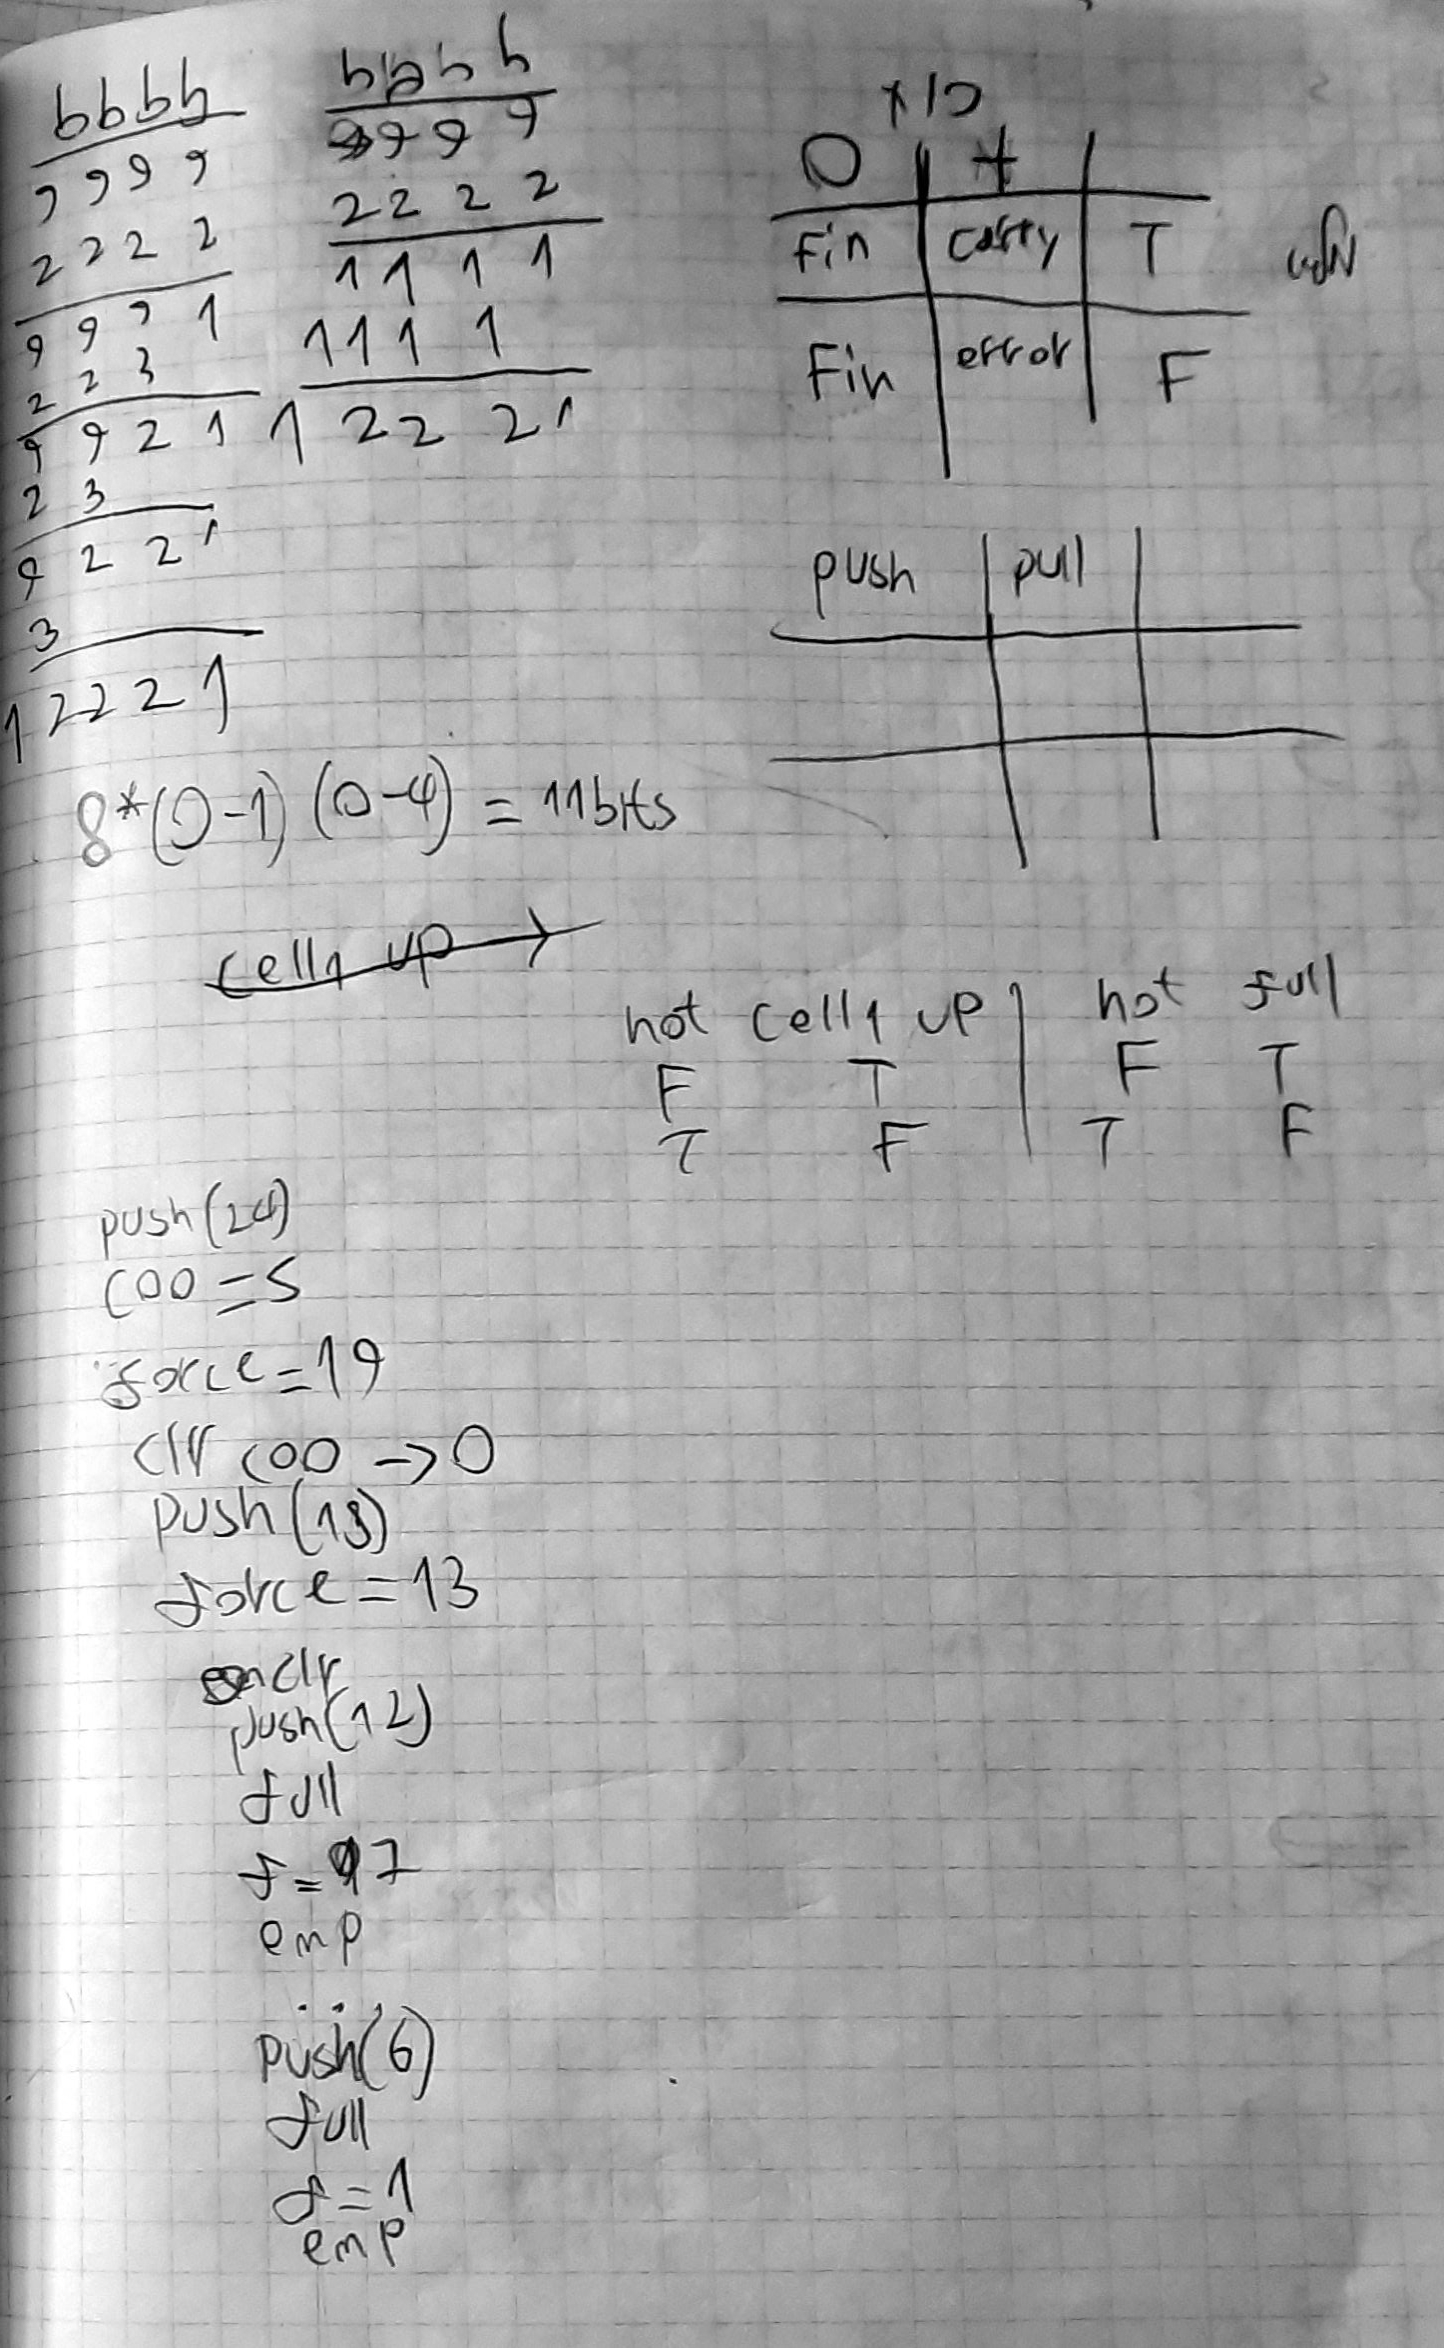 bbbb
9999
2222
9991
223
9921
23
9221
3
12221
bbbb
9999
2222
1111
1111
12221
0 +
Fin carry T
Fin error F
push pull
8*(0-1) (0-4) = 11bits
cell1 up →
not cell1 up | not full
F T F T
T F T F
push(24)
coo = 5
force = 19
clr coo -> 0
push(18)
force = 13
clr
push(12)
full
f = 7
emp
push(6)
full
f = 1
emp